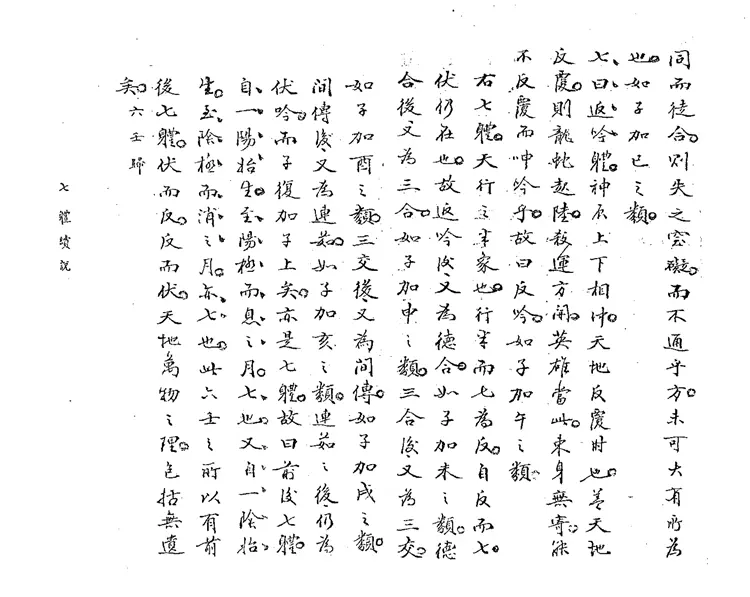 同而徒合。則失之窒礙。而不通乎方。未可大有所為
也。如子加巳之類。
七、曰返吟體。神辰上下相冲。天地反覆時也。蓋天地
反覆。則龍蛇起陸。殺運方開。英雄當此。束身無寄。能
不反覆而呻吟乎。故曰反吟。如子加午之類。
右七體。天行之半家也。行半而七為反。自反而七。
伏仍在也。故返吟後又為德合。如子加未之類。德
合後又為三合。如子加申之類。三合後又為三交。
如子加酉之類。三交後又為間傳。如子加戌之類。
間傳後又為連茹。如子加亥之類。連茹之後仍為
伏吟。而子復加子上矣。亦是七體。故曰前後七體。
自一陽始生。至陽極而息之月。七也。又自一陰始
生。至陰極而消之月。亦七也。此六壬之所以有前
後七體。伏而反。反而伏。天地萬物之理。包括無遺
矣。六壬歸
七體續説